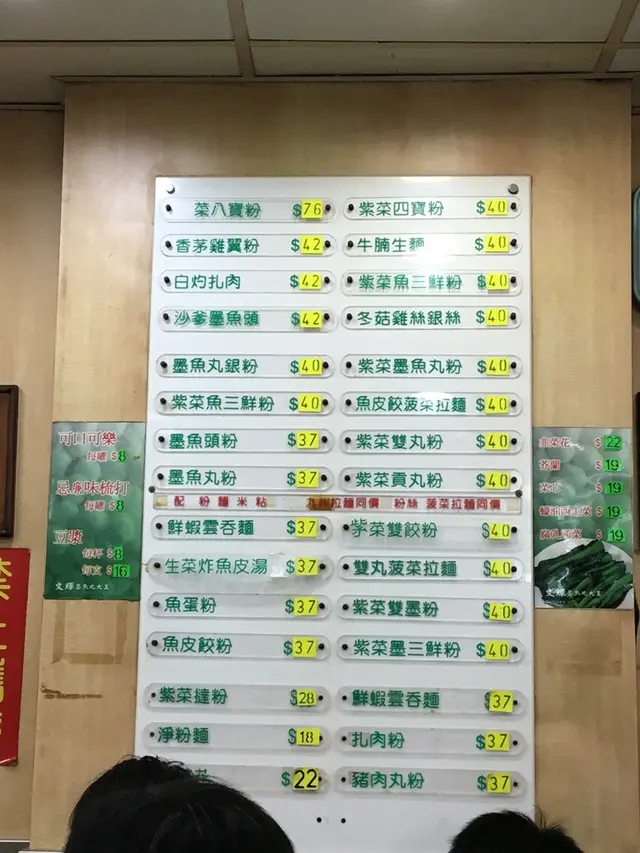 菜八寶粉 $76
香茅雞翼粉 $42
白灼扎肉 $42
沙爹墨魚頭 $42
墨魚丸銀粉 $40
紫菜魚三鮮粉 $40
墨魚頭粉 $37
墨魚丸粉 $37
配 粉 麵 米 粘 九州拉麵同價 粉絲 菠菜拉麵同價
鮮蝦雲吞麵 $37
生菜炸魚皮湯 $37
魚蛋粉 $37
魚皮餃粉 $37
紫菜撻粉 $28
淨粉麵 $18
$22
紫菜四寶粉 $40
牛腩生麵 $40
紫菜魚三鮮粉 $40
冬菇雞絲銀絲 $40
紫菜墨魚丸粉 $40
魚皮餃菠菜拉麵 $40
紫菜雙丸粉 $40
紫菜貢丸粉 $40
紫菜雙餃粉 $40
雙丸菠菜拉麵 $40
紫菜雙墨粉 $40
紫菜墨三鮮粉 $40
鮮蝦雲吞麵 $37
扎肉粉 $37
豬肉丸粉 $37
可口可樂
每罐 $8
忌廉味梳打
每罐 $8
豆漿
每杯 $8
每支 $16
文輝墨魚丸大王
韭菜花 $22
芥蘭 $19
菜心 $19
$19
$19
文輝墨魚丸大王